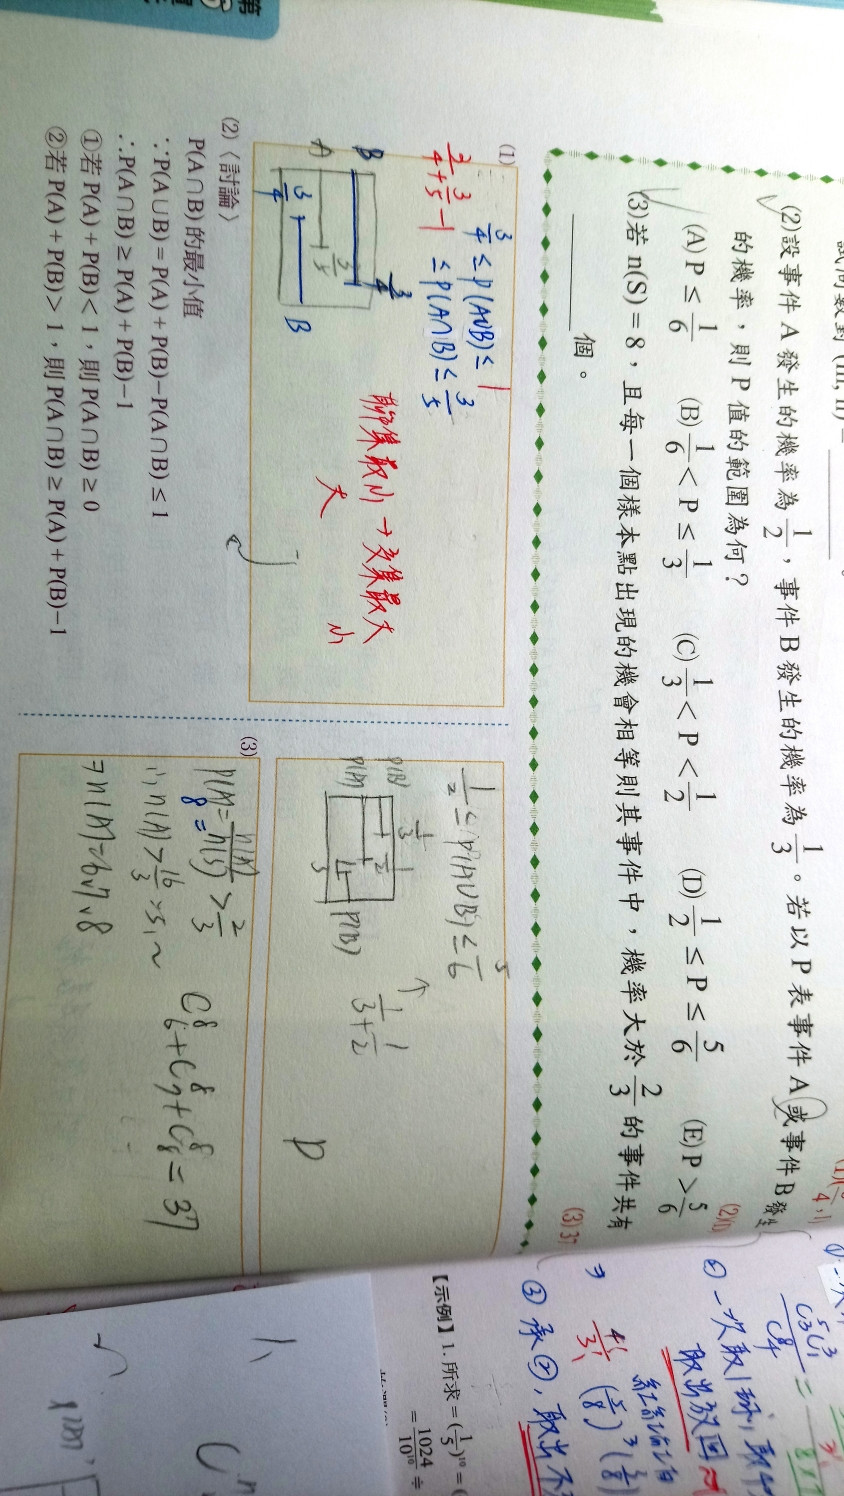 (2)設事件 A 發生的機率為 1/2，事件 B 發生的機率為 1/3。若以 P 表事件 A 或事件 B 發生
的機率，則 P 值的範圍為何？
(A) P ≤ 1/6 (B) 1/6 < P ≤ 1/3 (C) 1/3 < P < 1/2 (D) 1/2 ≤ P ≤ 5/6 (E) P > 5/6
(2)D
(3)若 n(S)＝8，且每一個樣本點出現的機會相等則其事件中，機率大於 2/3 的事件共有
________個。
(3) 37
(1)
3/4 ≤ P(A∪B) ≤ 1
3/4+3/5-1 ≤ P(A∩B) ≤ 3/5
聯集最小 → 交集最大
大 小
B
A
3/5
3/4
3/4
B
(2)〈討論〉
P(A∩B) 的最小值
∵P(A∪B)＝P(A)＋P(B)−P(A∩B) ≤ 1
∴P(A∩B) ≥ P(A)＋P(B)−1
①若 P(A)＋P(B)＜1，則 P(A∩B) ≥ 0
②若 P(A)＋P(B)＞1，則 P(A∩B) ≥ P(A)＋P(B)−1
1/2 ≤ P(A∪B) ≤ 5/6
1/3+1/2
P(B)
P(A)
1/3
1/2
P(B)
D
(3)
P(A)=n(A)/n(S) > 2/3
8=
∴n(A) > 16/3 > 5.~
⇒n(A)=6∨7∨8
C8/6+C8/7+C8/8=37
【示例】1. 所求＝(1/5)^10＝(
＝1024/10^10 ÷
一次取1球，取
取出放回
③ 承②，取出不
(5/8)^3 (3/8)